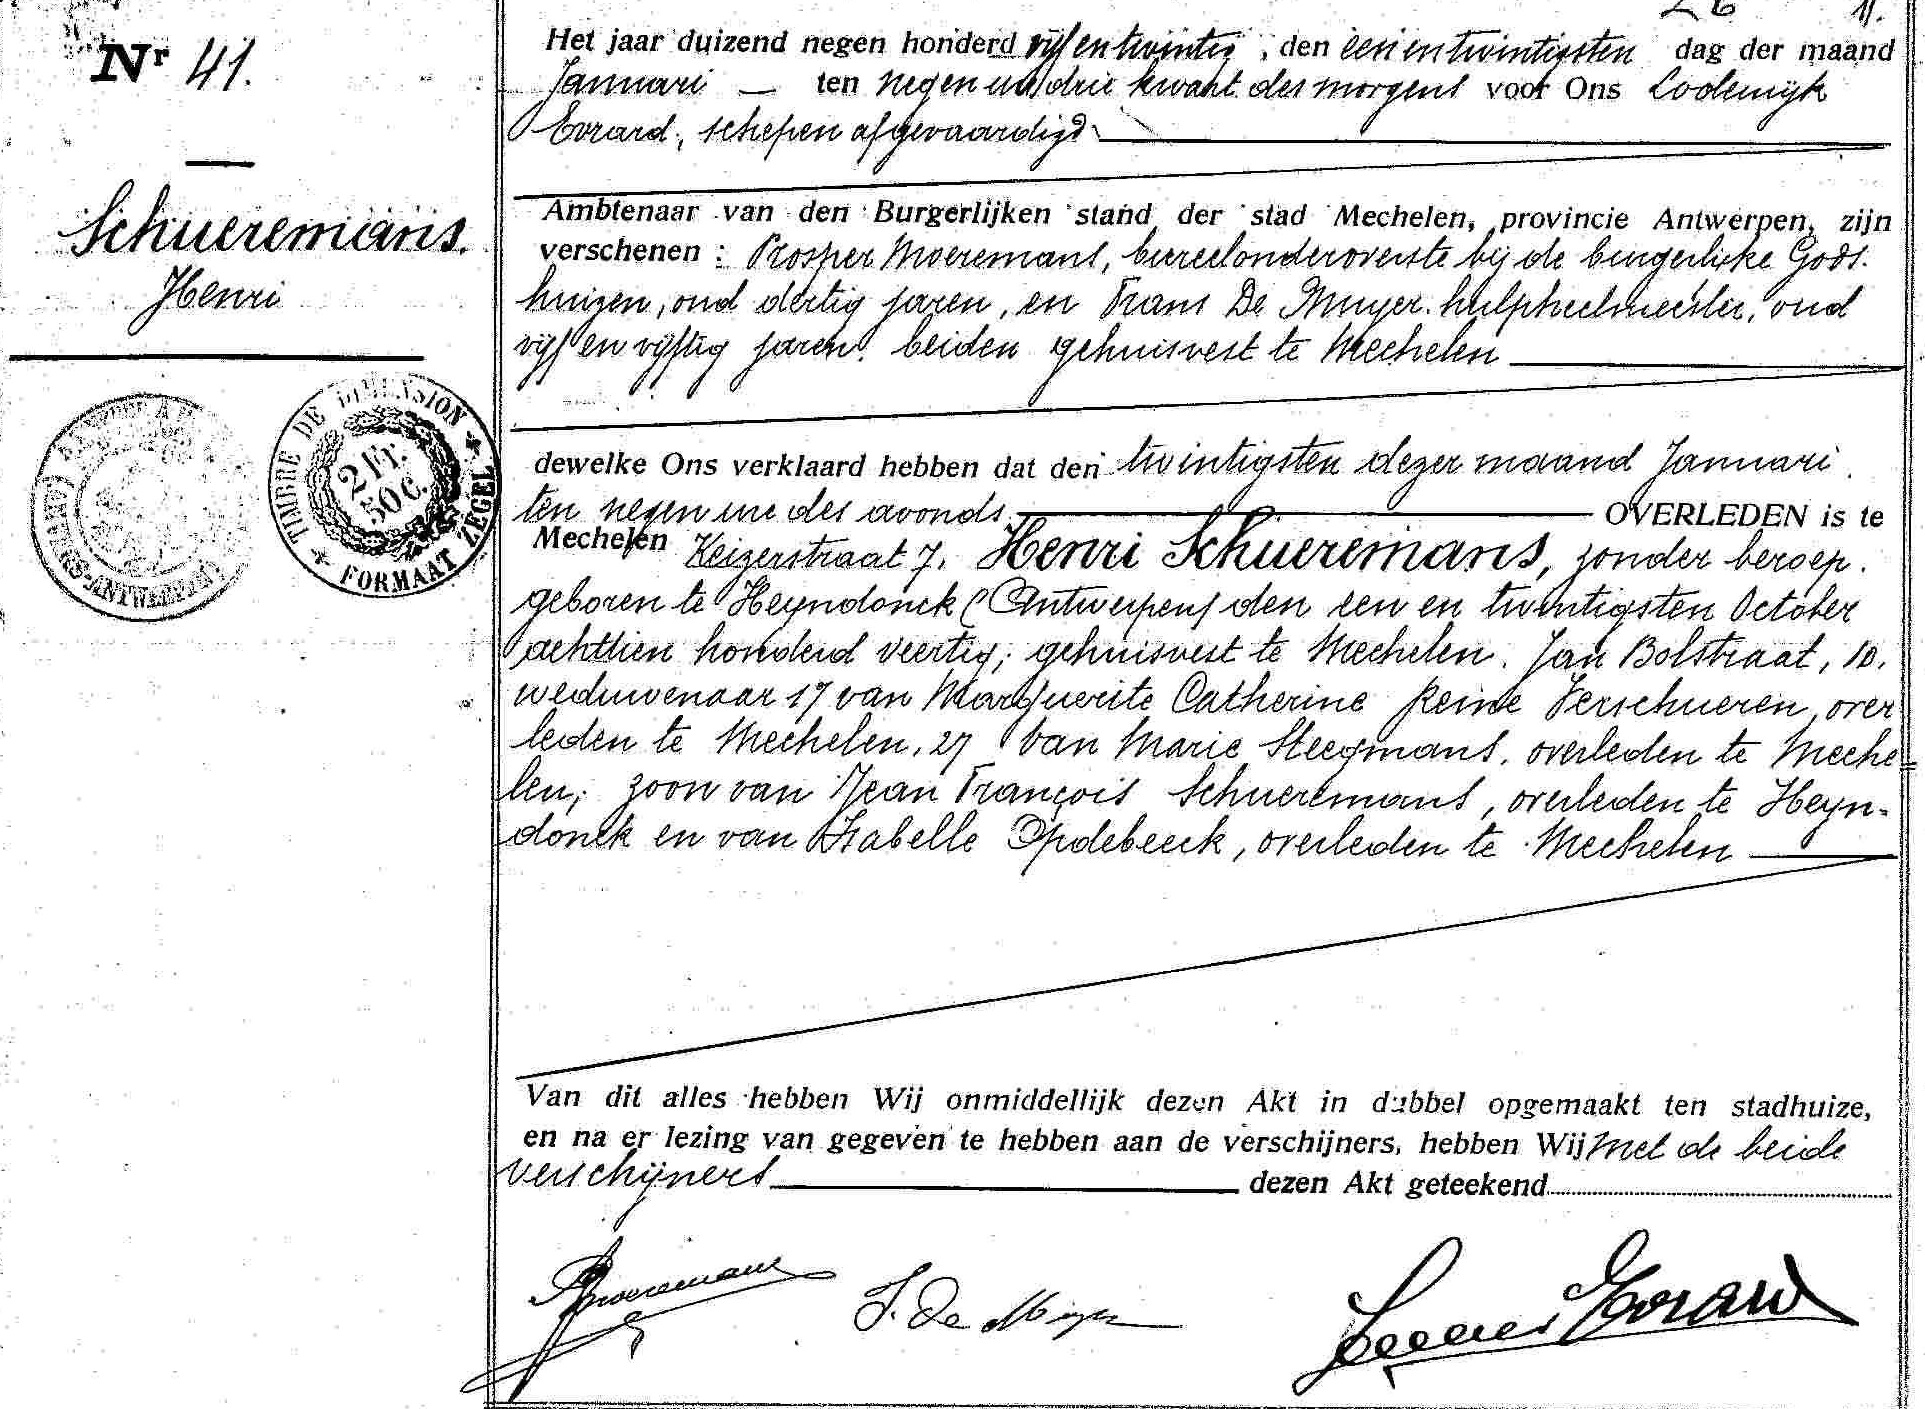 26 11.
Nr 41.
Schueremans.
Henri
TIMBRE DE DIMENSION
2 Fr. 50 C.
FORMAAT ZEGEL
(ANVERS-ANTWERPEN)
Het jaar duizend negen honderd vijf en twintig, den een en twintigsten dag der maand
Januari — ten negen ure drie kwart des morgens voor Ons Lodewijk
Evrard, schepen afgevaardigd
Ambtenaar van den Burgerlijken stand der stad Mechelen, provincie Antwerpen, zijn
verschenen : Prosper Moeremans, bureelonderoverste bij de burgerlijke Gods-
huizen, oud dertig jaren, en Frans De Muyer, hulpheelmeester, oud
vijf en vijftig jaren, beiden gehuisvest te Mechelen
dewelke Ons verklaard hebben dat den twintigsten dezer maand Januari
ten negen ure des avonds OVERLEDEN is te
Mechelen Keizerstraat 7, Henri Schueremans, zonder beroep,
geboren te Heyndonck (Antwerpen) den een en twintigsten October
achttien honderd veertig; gehuisvest te Mechelen, Jan Bolstraat, 10,
weduwenaar 1) van Marguerite Catherine Reine Verschueren, over
leden te Mechelen, 2) van Marie Steegmans, overleden te Meche=
len; zoon van Jean François Schueremans, overleden te Heyn-
donck en van Isabelle Opdebeeck, overleden te Mechelen
Van dit alles hebben Wij onmiddellijk dezen Akt in dubbel opgemaakt ten stadhuize,
en na er lezing van gegeven te hebben aan de verschijners, hebben Wij met de beide
verschijners dezen Akt geteekend
PMoeremans F. De Muyer Evrard